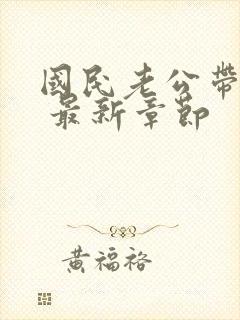 國民老公帶
最新章節
黃福裕